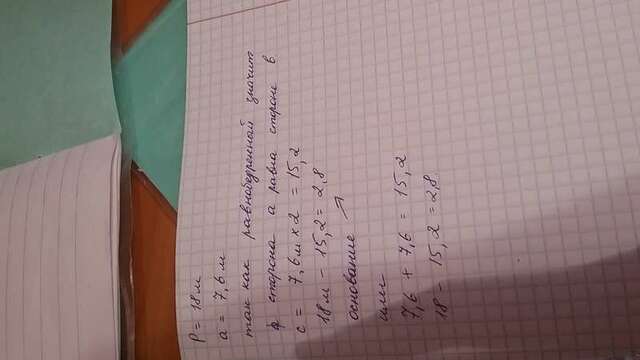 P = 18 м
a = 7,6 м
так как равнобедренный значит
сторона а равна стороне в
c = 7,6 м x 2 = 15,2
18 м - 15,2 = 2,8
основание ↗
или
7,6 + 7,6 = 15,2
18 - 15,2 = 2,8